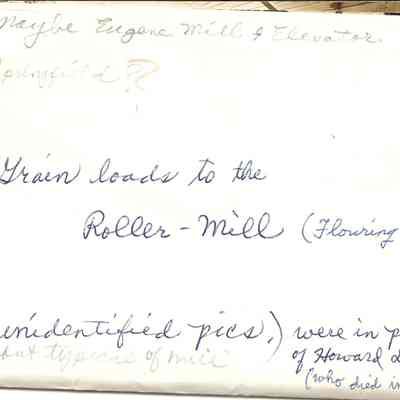 Maybe Eugene Mill & Elevator
Springfield?
Grain loads to the
Roller-Mill (Flouring
unidentified pics.) were in p
of mill
of Howard
(who died in